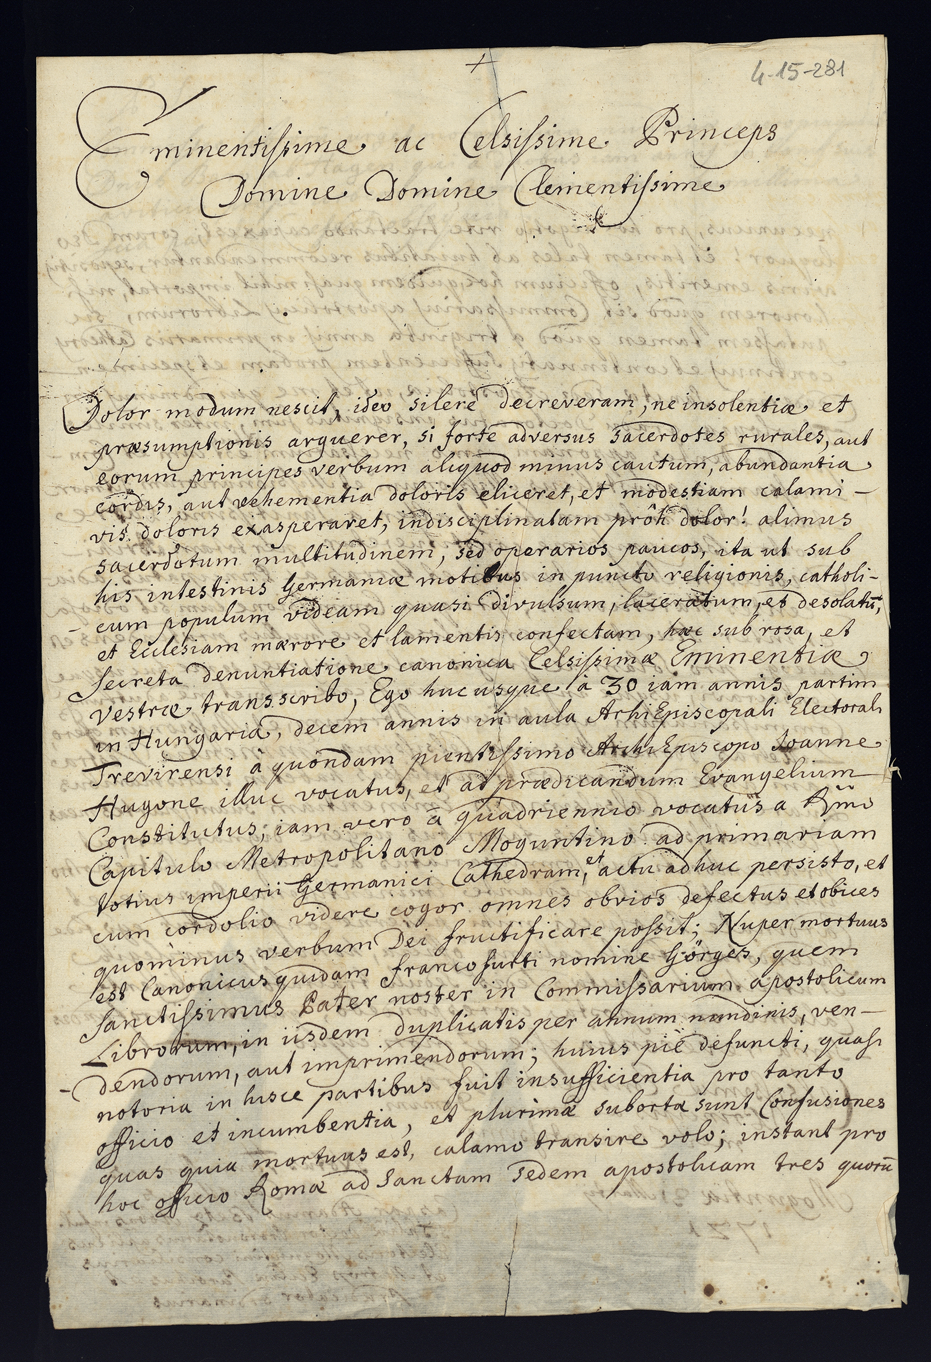 +
4-15-281
Eminentissime ac Celsissime Princeps
Domine Domine Clementissime
Dolor modum nescit, ideo silere decreveram, ne insolentiæ et
præsumptionis arguerer, si forte adversus sacerdotes rurales, aut
eorum principes verbum aliquod minus cautum, abundantia
cordis, aut vehementia doloris eliceret, et modestiam calami
vis doloris exasperaret, indisciplinatam prôh dolor! alimus
sacerdotum multitudinem, sed operarios paucos, ita ut sub
his intestinis Germaniæ motibus in puncto religionis, catholi-
cum populum videam quasi divulsum, laceratum, et desolatū,
et Ecclesiam mærore et lamentis confectam, hæc sub rosa, et
secreta denuntiatione canonica Celsissimæ Eminentiæ
Vestræ transscribo, Ego hucusque à 30 iam annis partim
in Hungaria, decem annis in aula ArchiEpiscopali Electorali
Trevirensi à quondam pientissimo ArchiEpiscopo Joanne
Hugone illuc vocatus, et ad prædicandum Evangelium
Constitutus; iam vero à quadriennio vocatus a Rmo
Capitulo Metropolitano Moguntino ad primariam
totius imperii Germanici Cathedram, et actu adhuc persisto, et
cum cordolio videre cogor omnes obvios defectus et obices
quominus verbum Dei fructificare possit; Nuper mortuus
est Canonicus quidam francofurti nomine Görges, quem
Sanctissimus Pater noster in Commissarium apostolicum
Librorum, in iisdem duplicatis per annum nundinis, ven-
dendorum, aut imprimendorum; huius piè defuncti, quasi
notoria in hisce partibus fuit insufficientia pro tanto
officio et incumbentia, et plurimæ subortæ sunt Confusiones
quas quia mortuus est, calamo transire volo; instant pro
hoc officio Romæ ad Sanctam Sedem apostolicam tres quorū